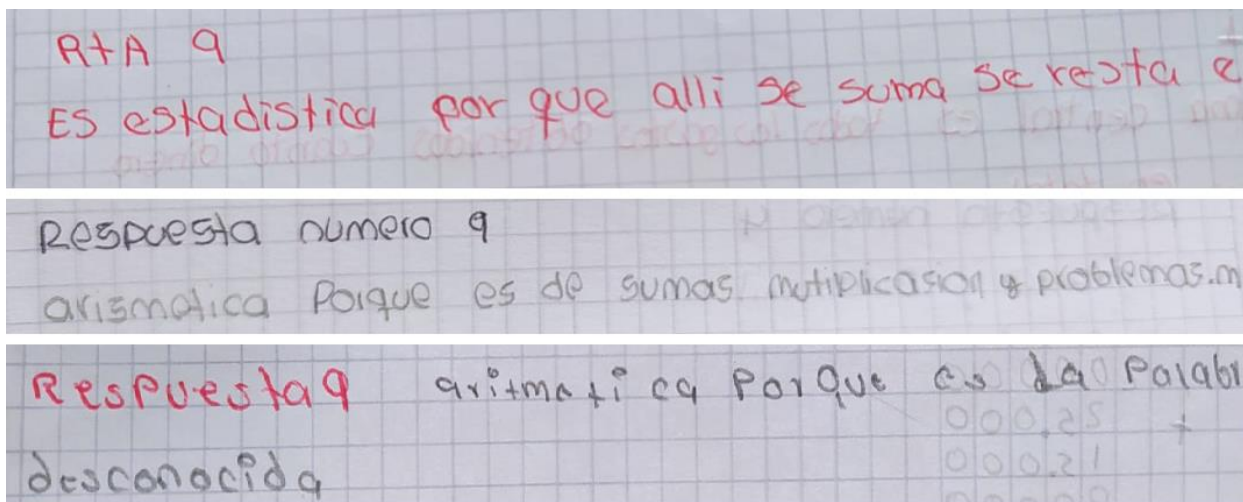 R+A 9
ES estadistica por que alli se suma se resta e
Respuesta numero 9
arismatica Porque es de sumas mutiplicasion y problemas.m
Respuesta 9 aritmatica Porque es la Palabr
desconocida